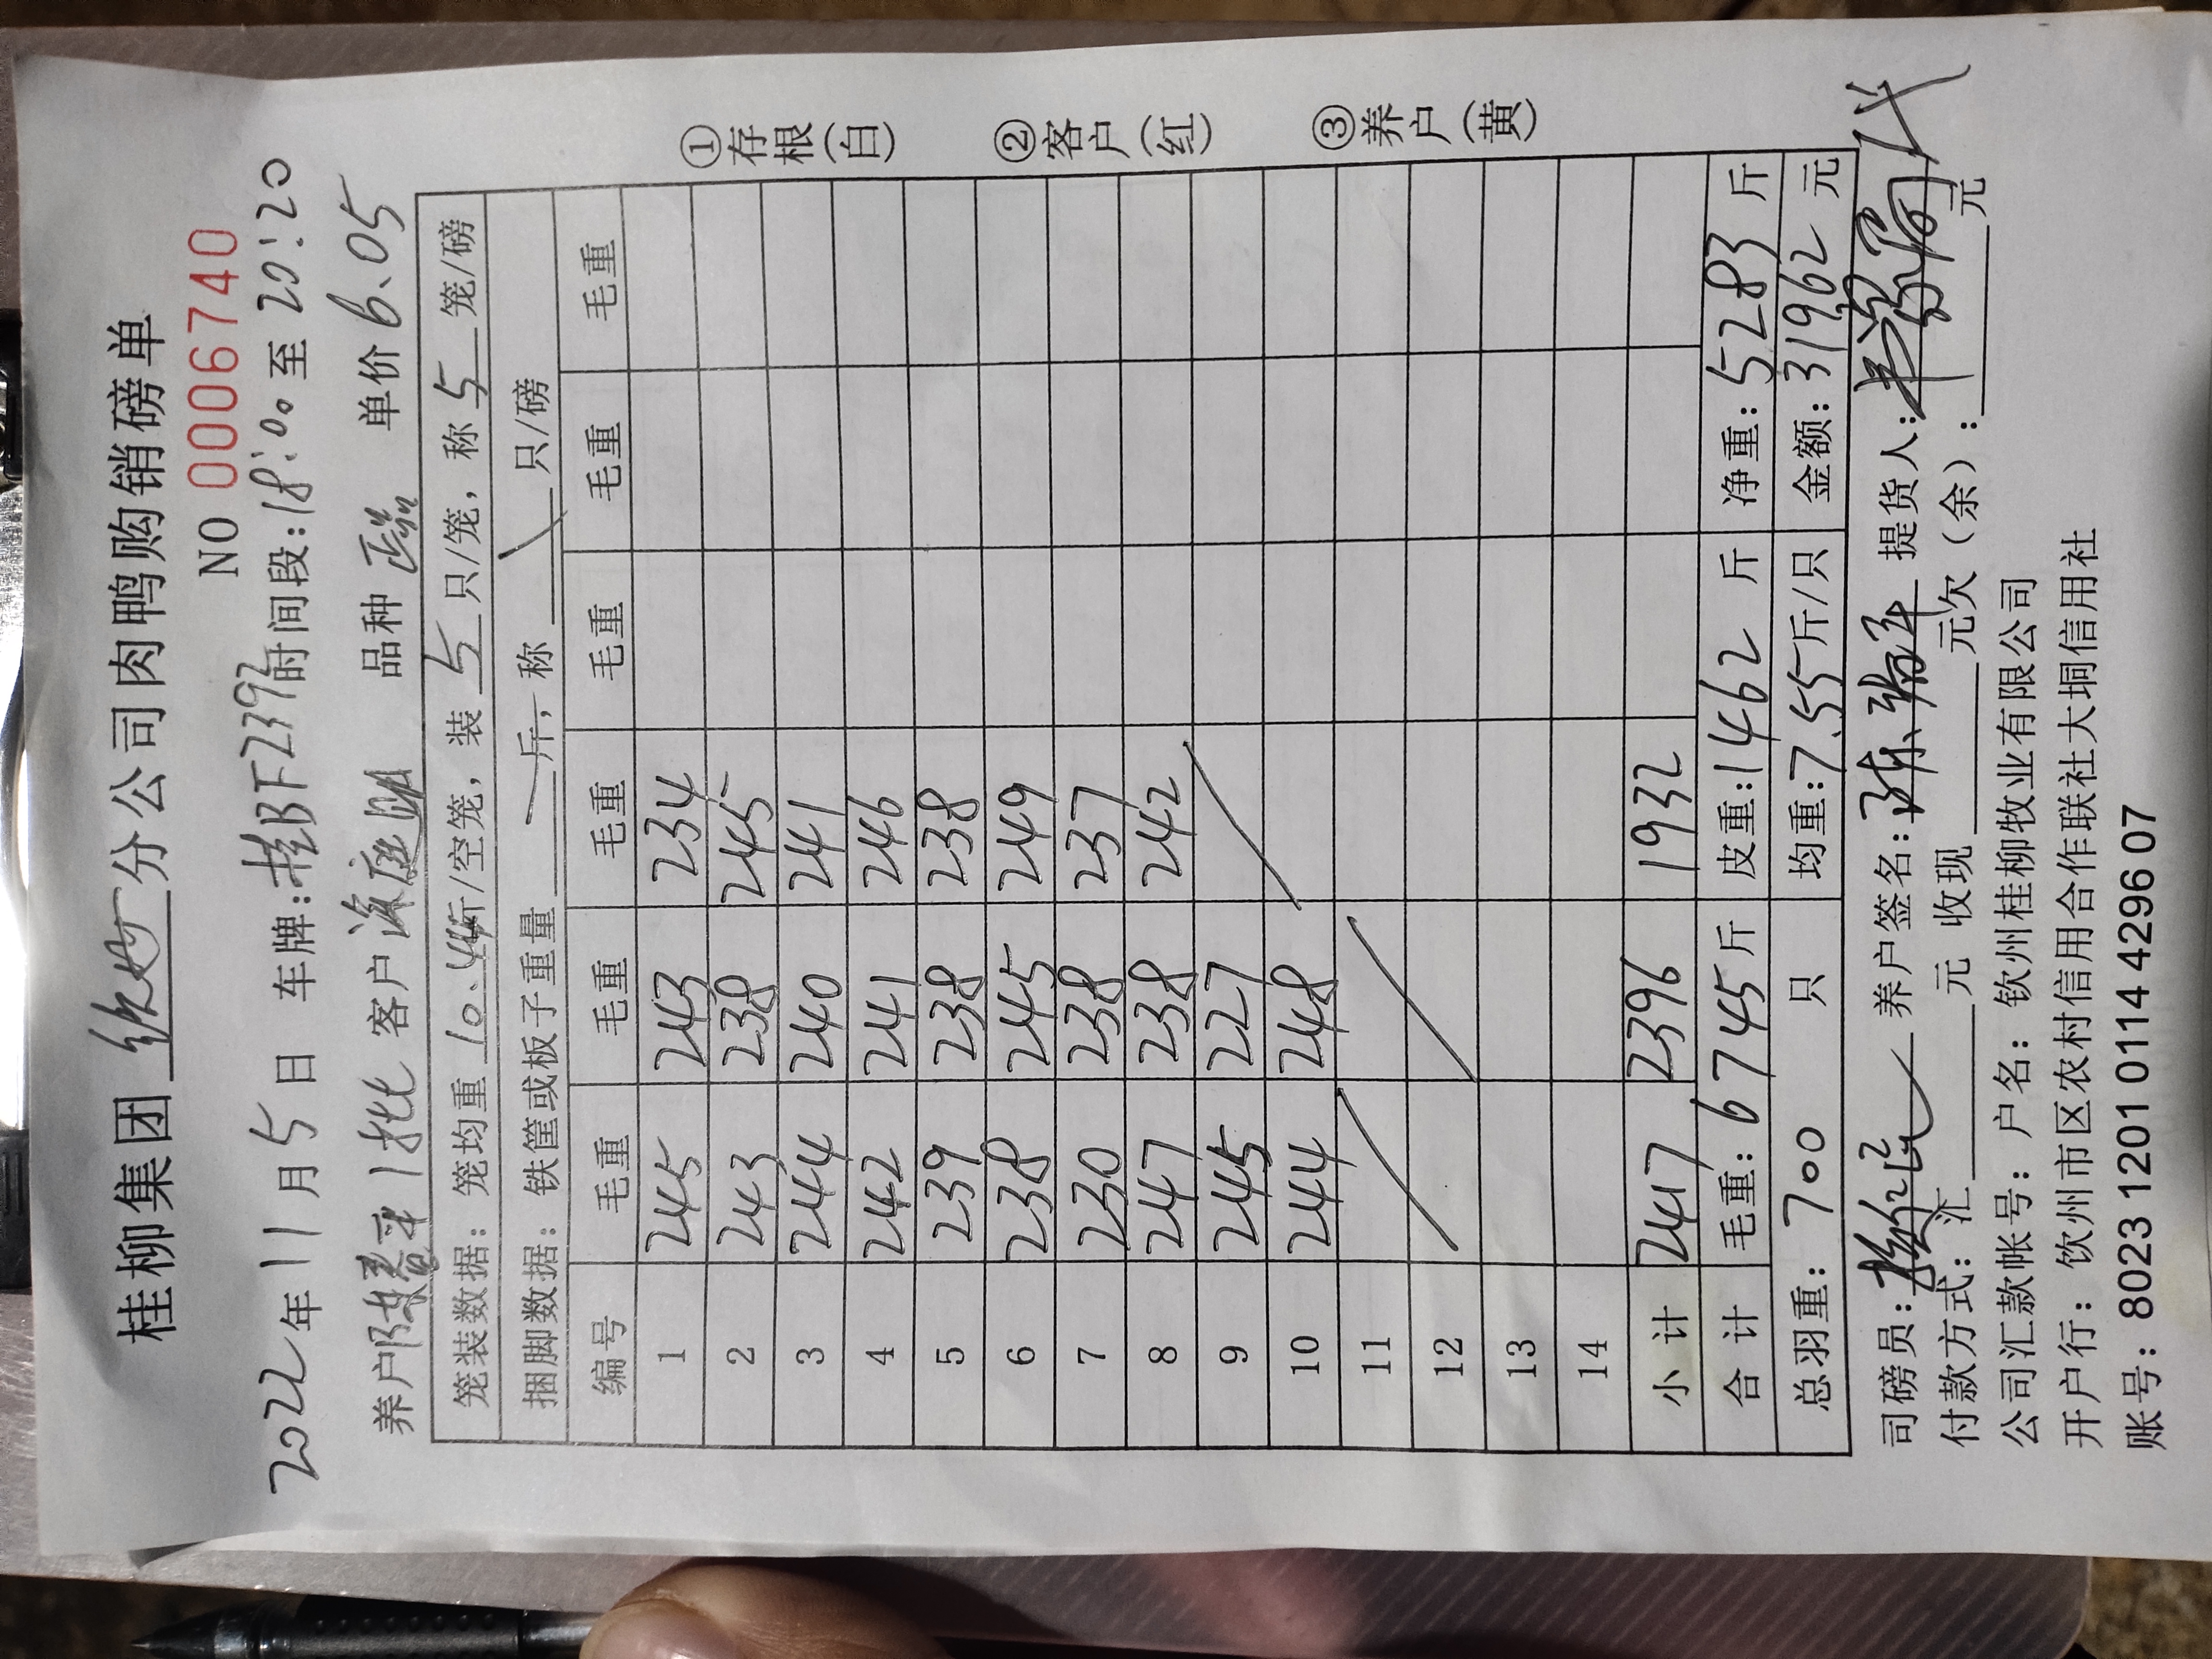 桂柳集团 钦州 分公司肉鸭购销磅单
NO 0006740
2022年11月5日 车牌:桂BF2392 时间段:18:00至20:20
养户 陈 1批 客户 海庭 品种 单价6.05
笼装数据: 笼均重 10.44斤/空笼, 装 5 只/笼, 称 5 笼/磅
捆脚数据: 铁筐或板子重量 / 斤, 称 \ 只/磅
编号 毛重 毛重 毛重 毛重 毛重 毛重
1 245 243 234
2 243 238 245
3 244 240 241
4 242 241 246
5 239 238 238
6 238 245 249
7 230 238 237
8 247 238 242
9 245 227
10 244 248
11
12
13
14
小 计 2417 2396 1932
合 计 毛重: 6745斤 皮重:1462 斤 净重: 5283 斤
总羽重: 700 只 均重:7.55斤/只 金额: 31962 元
司磅员: 养户签名: 陈 提货人: 代
付款方式: 汇 元 收现 元欠(余): 元
公司汇款帐号: 户名: 钦州桂柳牧业有限公司
开户行: 饮州市区农村信用合作联社大垌信用社
账号: 8023 1201 0114 4296 07
①存根(白)
②客户(红)
③养户(黄)